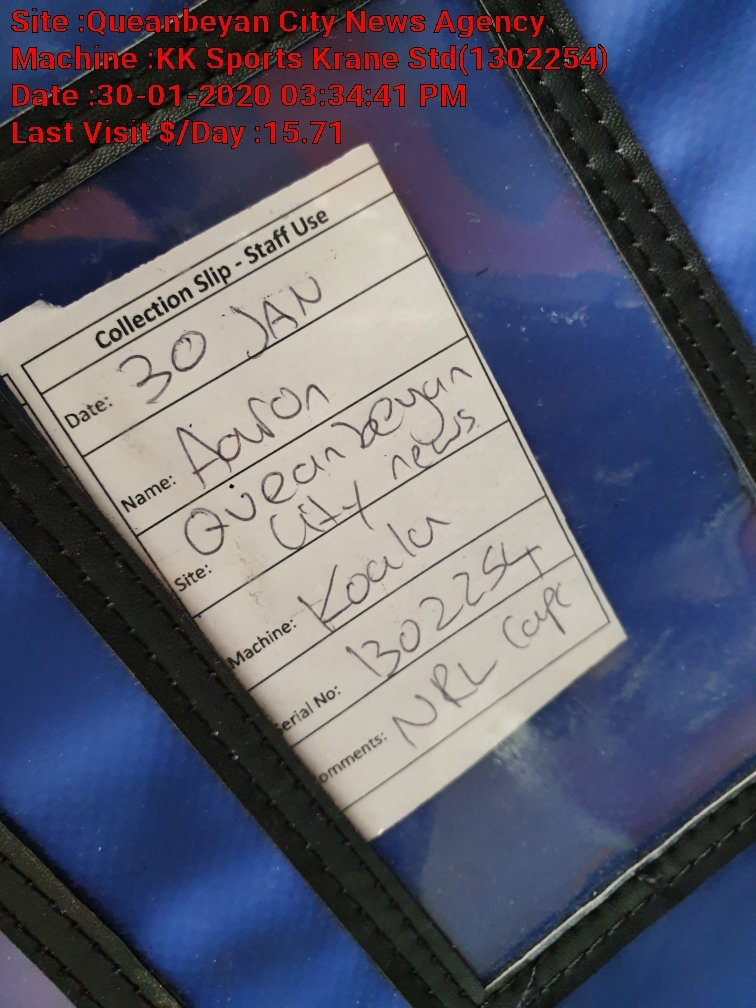 Site :Queanbeyan City News Agency
Machine :KK Sports Krane Std(1302254)
Date :30-01-2020 03:34:41 PM
Last Visit $/Day :15.71
Collection Slip - Staff Use
Date: 30 JAN
Name: Aaron
Site: Queanbeyan
City news
Machine: Koala
erial No: 1302254
omments: NRL Caps